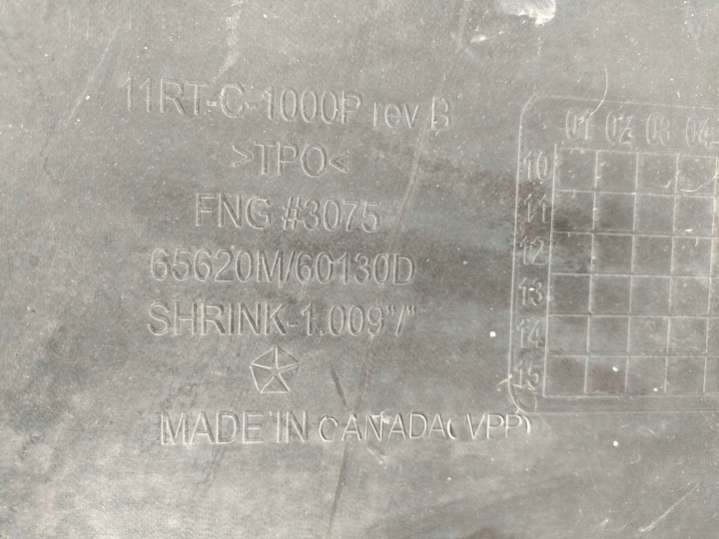 11RT-C-1000P rev B
>TPO<
FNG #3075
65620M/60130D
SHRINK-1.009"/"
MADE IN CANADA(VPP)
01 02 03 04
10
11
12
13
14
15